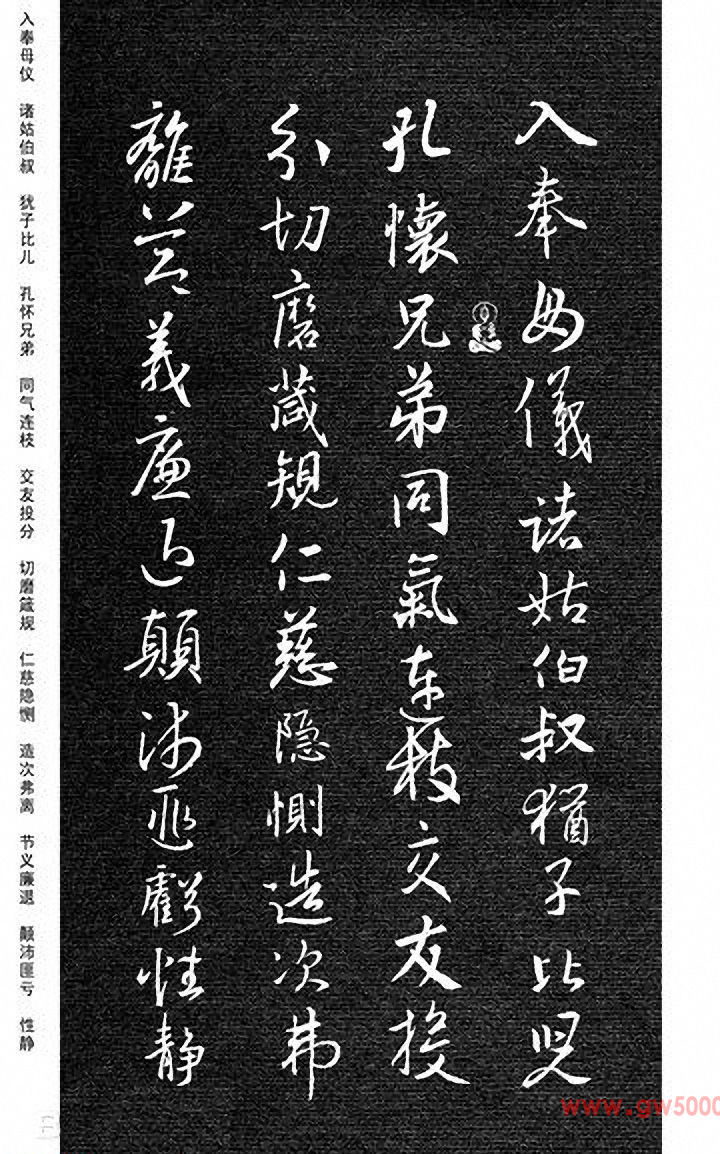 入奉母儀諸姑伯叔猶子比兒
孔懷兄弟同氣連枝交友投
分切磨箴規仁慈隱惻造次弗
離節義廉退顛沛匪虧性静
入奉母仪 诸姑伯叔 犹子比儿 孔怀兄弟 同气连枝 交友投分 切磨箴规 仁慈隐恻 造次弗离 节义廉退 颠沛匪亏 性静
www.gw5000